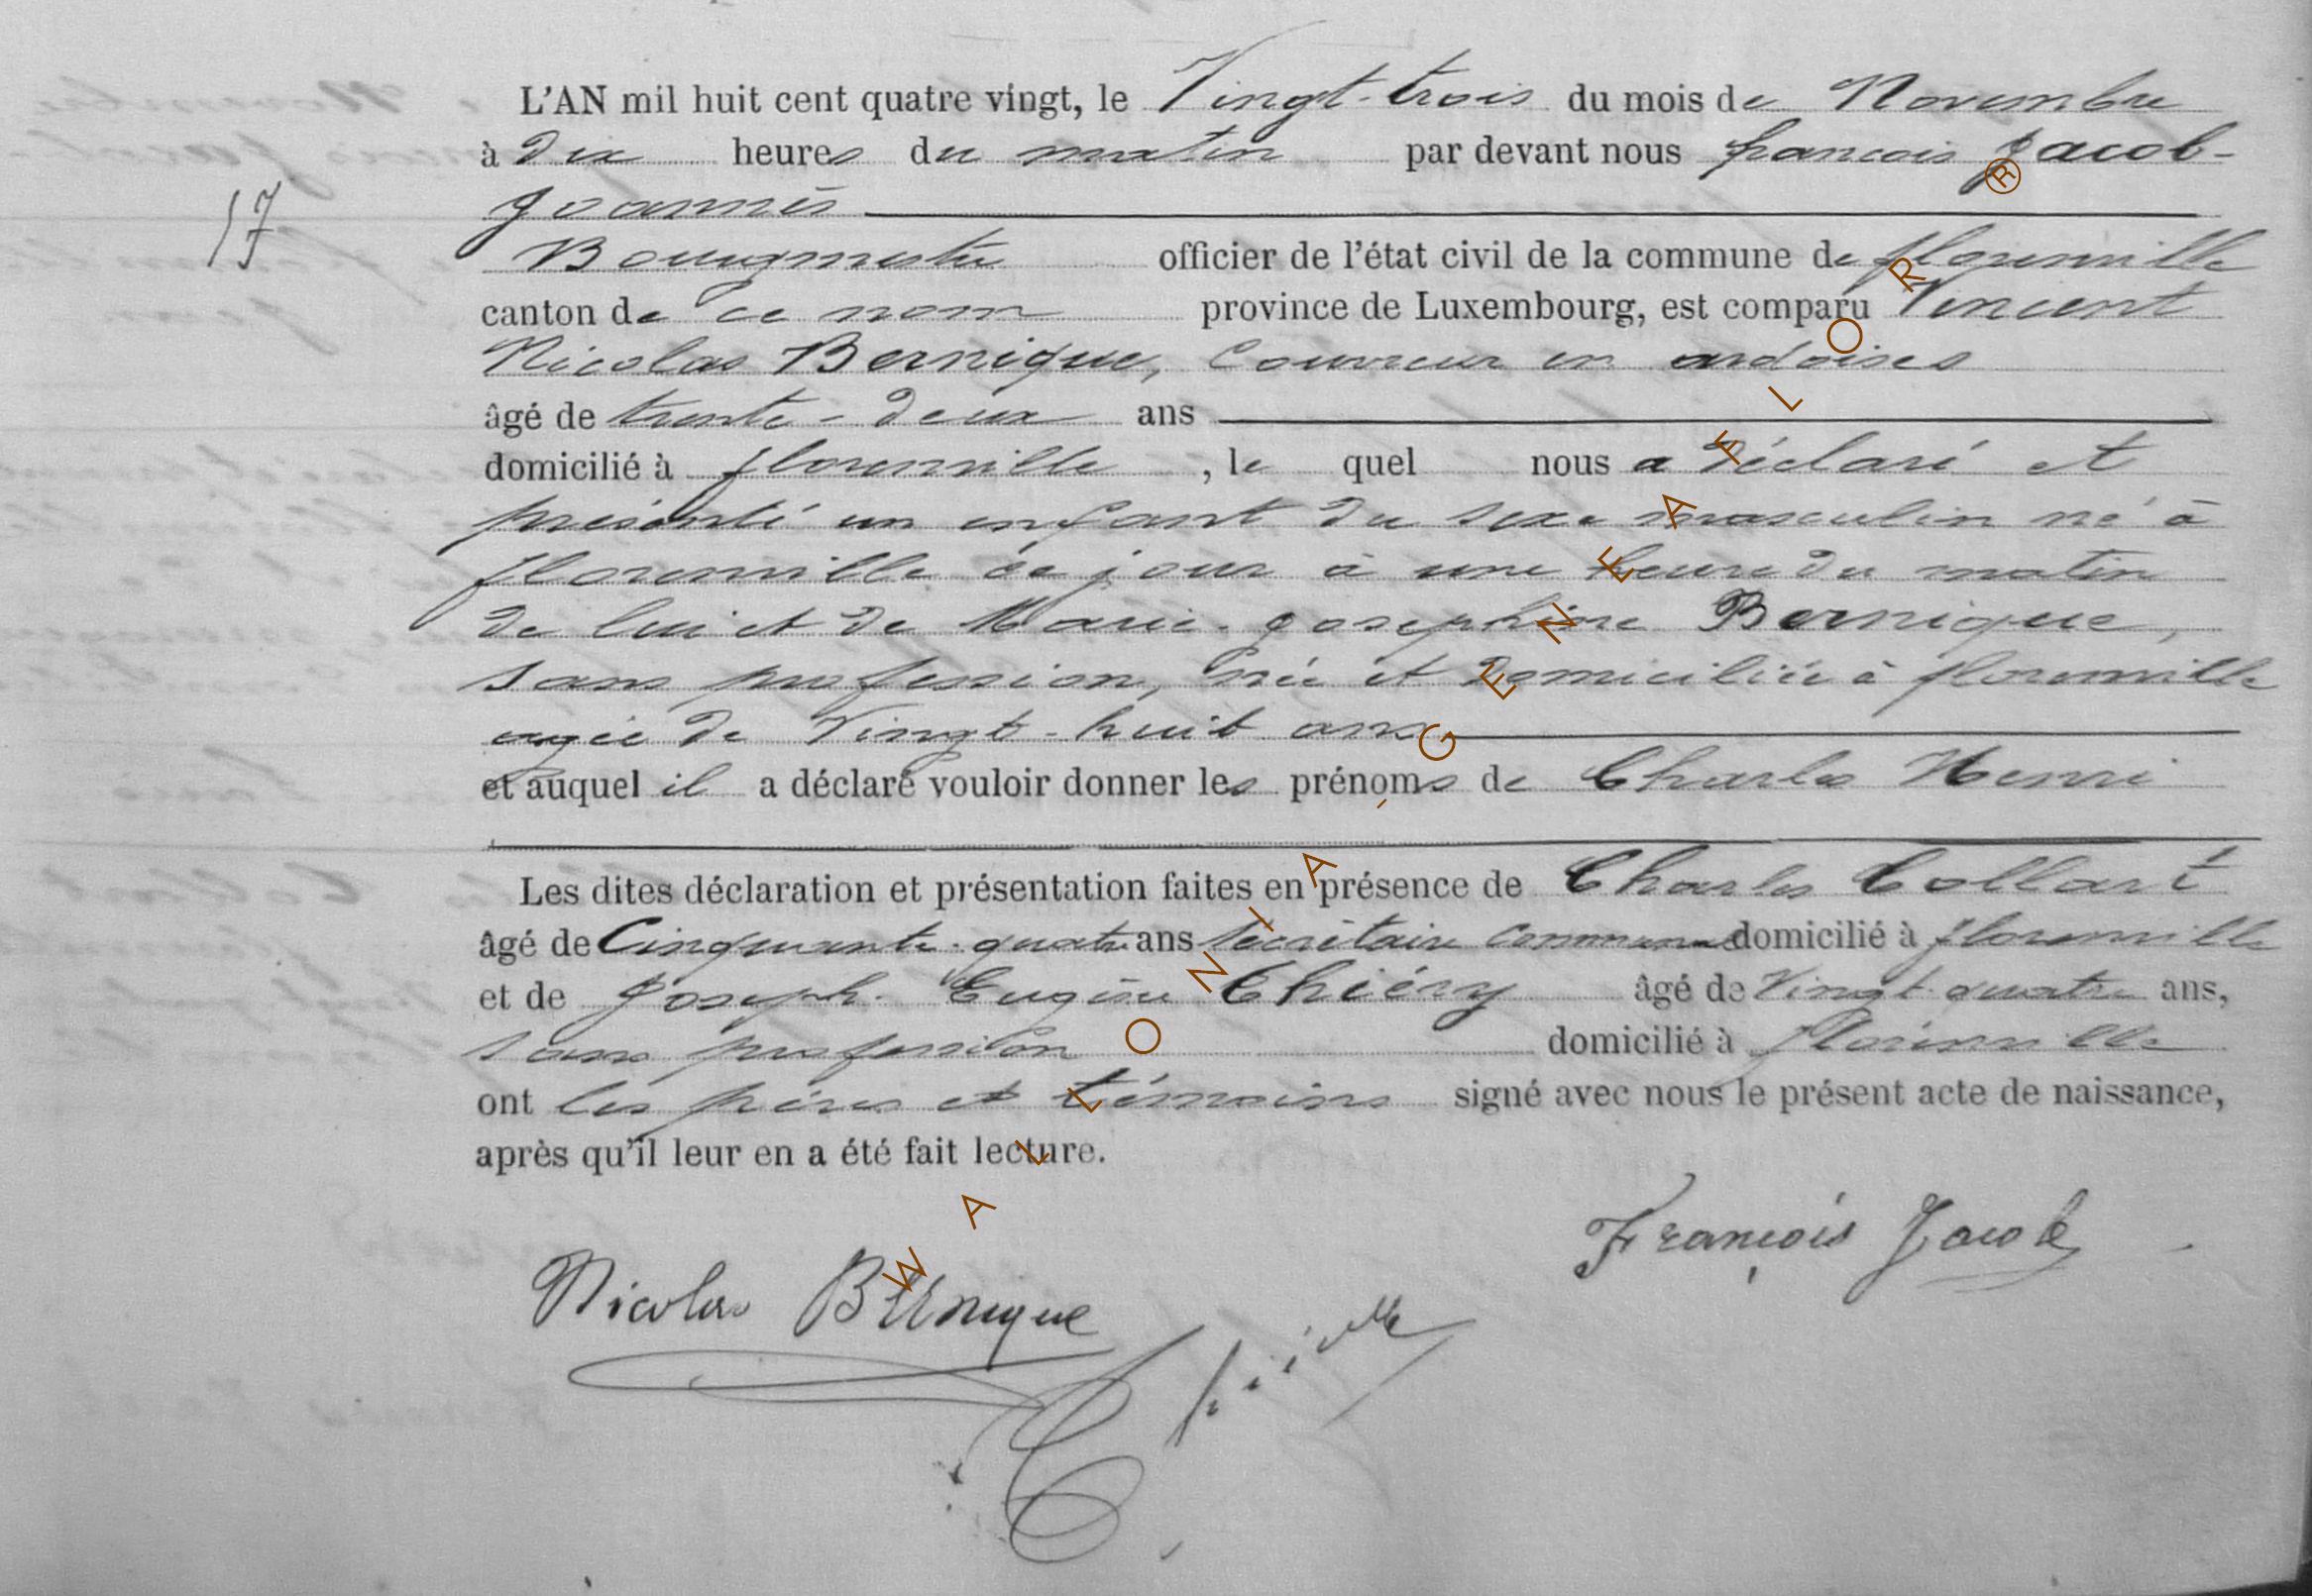 L'AN mil huit cent quatre vingt, le Vingt-trois du mois de Novembre
à dix heures du matin par devant nous françois Jacob-
Joannès
Bourgmestre officier de l'état civil de la commune de florenville
canton de ce nom province de Luxembourg, est comparu Vincent
Nicolas Bernique, Couvreur en ardoises
âgé de trente-deux ans
domicilié à florenville, le quel nous a déclaré et
présenté un enfant du sexe masculin né à
florenville ce jour à une heure du matin
de lui et de Marie-Joséphine Bernique,
sans profession, née et domiciliée à florenville
agée de Vingt-huit ans
et auquel il a déclaré vouloir donner les prénoms de Charles Henri
Les dites déclaration et présentation faites en présence de Charles Collart
âgé de Cinquante-quatre ans secrétaire communal domicilié à florenville
et de Joseph-Eugène Thiéry âgé de Vingt-quatre ans,
sans profession domicilié à florenville
ont les pères et témoins signé avec nous le présent acte de naissance,
après qu'il leur en a été fait lecture.
17
François Jacob
Nicolas Bernique
WALLONIA - GENEAFLOR ®